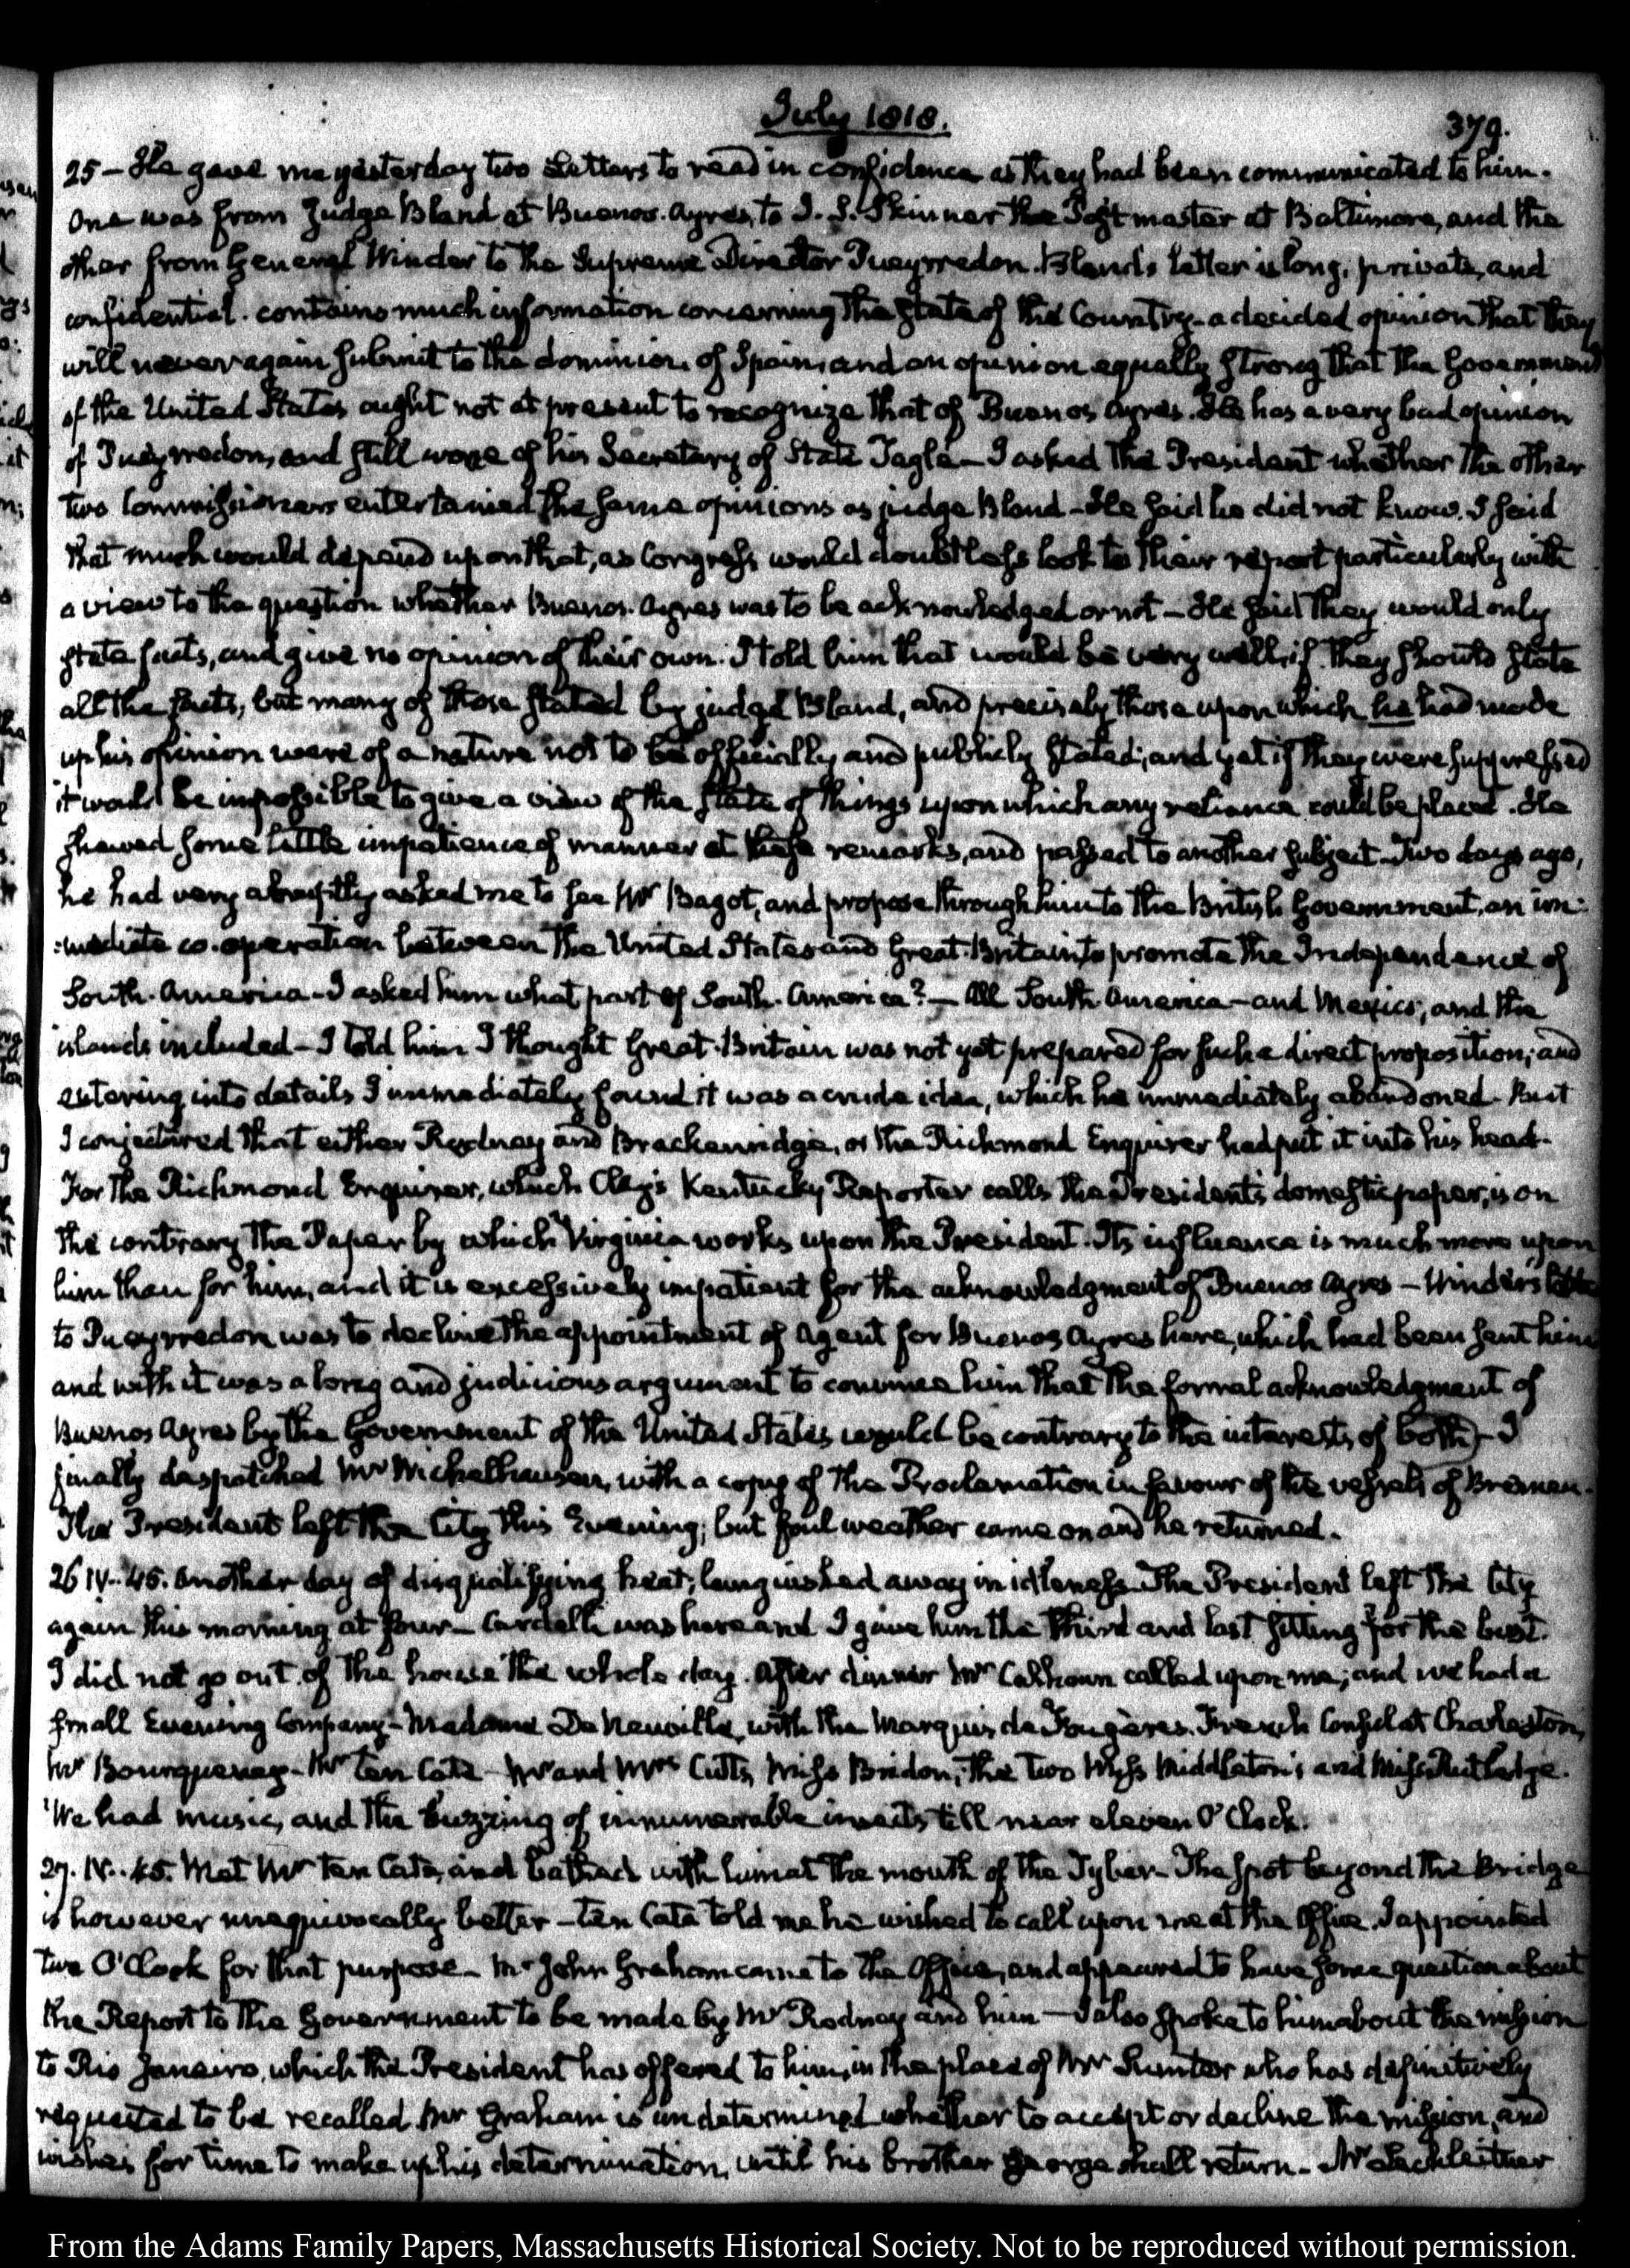 July 1818.
379.
25 - He gave me yesterday two Letters to read in confidence as they had been communicated to him.
One was from Judge Bland at Buenos-Ayres, to J. S. Skinner the Postmaster at Baltimore, and the
other from General Winder to the Supreme Director Pueyrredon. Bland's letter is long, private, and
confidential. contains much information concerning the State of the Country - a decided opinion that they
will never again submit to the dominion of Spain, and an opinion equally strong that the Government
of the United States ought not at present to recognize that of Buenos Ayres. He has a very bad opinion
of Pueyrredon, and still worse of his Secretary of State Tagle - I asked the President whether the other
two Commissioners entertained the same opinions as judge Bland - He said he did not know. I said
that much would depend upon that, as Congress would doubtless look to their report particularly with
a view to the question whether Buenos-Ayres was to be acknowledged or not - He said they would only
state facts, and give no opinion of their own. I told him that would be very well, if they should state
all the facts; but many of those stated by judge Bland, and precisely those upon which he had made
up his opinion were of a nature not to be officially and publicly stated; and yet if they were suppressed
it would be impossible to give a view of the state of things upon which any reliance could be placed. He
shewed some little impatience of manner at these remarks, and passed to another subject - Two days ago,
he had very abruptly asked me to see Mr Bagot, and propose through him to the British Government, an im-
:mediate co-operation between the United States and Great-Britain, to promote the Independence of
South-America - I asked him what part of South-America? - All South America - and Mexico, and the
islands included - I told him I thought Great-Britain was not yet prepared for such a direct proposition; and
entering into details I immediately found it was a crude idea, which he immediately abandoned. But
I conjectured that either Rodney and Brackenridge, or the Richmond Enquirer had put it into his head.
For the Richmond Enquirer, which Clay's Kentucky Reporter calls the President's domestic paper, is on
the contrary the Paper by which Virginia works upon the President. Its influence is much more upon
him than for him, and it is excessively impatient for the acknowledgment of Buenos Ayres - Winder's letter
to Pueyrredon was to decline the appointment of Agent for Buenos Ayres here, which had been sent him
and with it was a long and judicious argument to convince him that the formal acknowledgment of
Buenos Ayres by the Government of the United States would be contrary to the interests of both - I
finally despatched Mr Wichelhausen, with a copy of the Proclamation in favour of the vessels of Bremen.
The President left the City this Evening; but foul weather came on and he returned.
26 IV. 45. Another day of disqualifying heat; languished away in idleness. The President left the City
again this morning at four - Cardelli was here and I gave him the third and last sitting for the bust.
I did not go out of the house the whole day. After dinner Mr Calhoun called upon me; and we had a
small Evening Company - Madame De Neuville, with the Marquis de Fougères. French Consul at Charleston,
Mr Bourqueney - Mr ten Cate - Mr and Mrs Cutts, Miss Bridon, the two Miss Middleton's and Miss Rutledge.
We had music, and the buzzing of innumerable insects till near eleven O'Clock.
27. IV. 45. Met Mr ten Cate, and bathed with him at the mouth of the Tyber - The spot beyond the Bridge
is however unequivocally better - ten Cate told me he wished to call upon me at the Office. I appointed
two O'Clock for that purpose - Mr John Graham came to the Office, and appeared to have some question about
the Report to the Government to be made by Mr Rodney and him - I also spoke to him about the mission
to Rio Janeiro, which the President has offered to him, in the place of Mr Sumter who has definitively
requested to be recalled. Mr Graham is undetermined whether to accept or decline the mission, and
wishes for time to make up his determination, until his brother George shall return - Mr Lechleitner
From the Adams Family Papers, Massachusetts Historical Society. Not to be reproduced without permission.